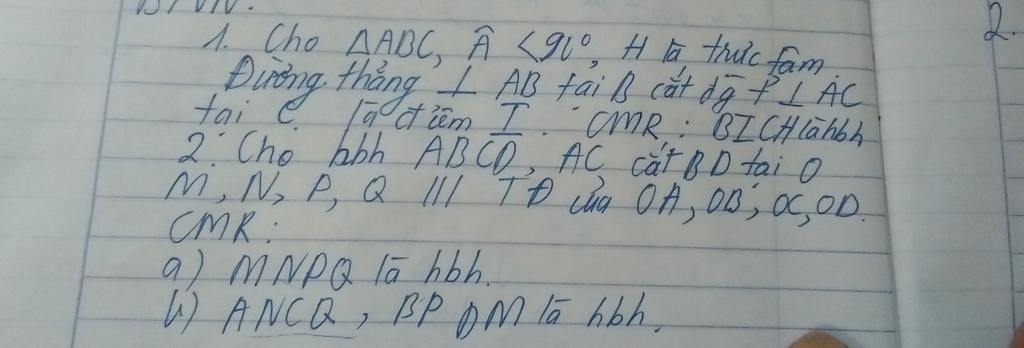 BTVN:
1. Cho ΔABC, Â < 90°, H là trực tâm.
Đường thẳng ⊥ AB tại B cắt đg t ⊥ AC
tại C là điểm I. CMR: BICH là hbh
2. Cho hbh ABCD, AC cắt BD tại O
M, N, P, Q /// TĐ của OA, OB, OC, OD.
CMR:
a) MNPQ là hbh.
b) ANCQ, BPDM là hbh.
2.